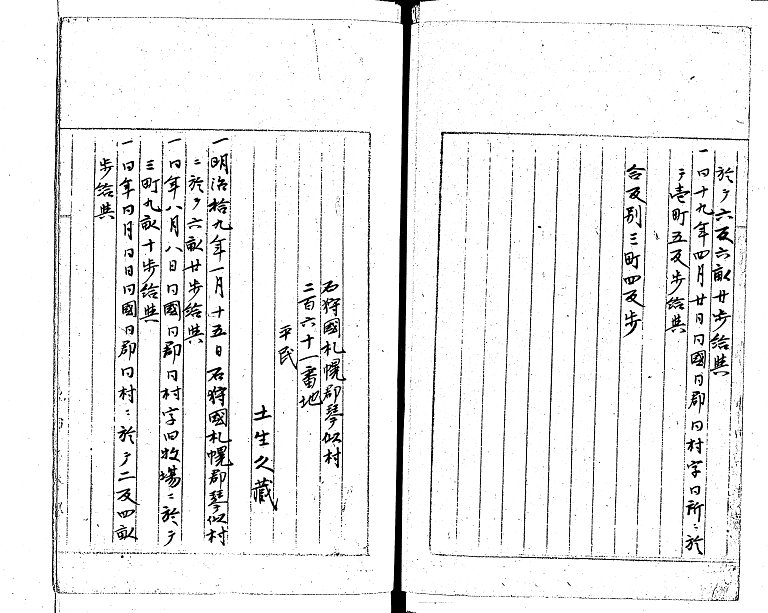 於テ六反六畝廿歩給与
一同十九年四月廿日同國同郡同村字同所ニ於
テ壱町五反歩給与
合反別三町四反歩
石狩國札幌郡琴似村
二百六十一番地
平民
土生久藏
一明治拾九年一月十五日石狩國札幌郡琴似村
ニ於テ六畝廿歩給与
一同年八月八日同國同郡同村字旧牧場ニ於テ
三町九畝十歩給与
一同年同月同日同國同郡同村ニ於テ二反四畝
歩給与